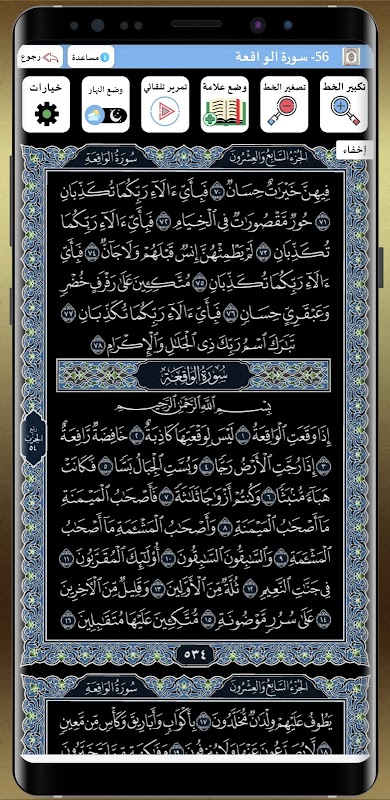 56- سورة الواقعة
مساعدة
رجوع
تكبير الخط
تصغير الخط
وضع علامة
تمرير تلقائي
وضع النهار
خيارات
إخفاء
الجزء السابع والعشرون
سورة الواقعة
فِيهِنَّ خَيْرَٰتٌ حِسَانٌ ٧٠ فَبِأَيِّ ءَالَآءِ رَبِّكُمَا تُكَذِّبَانِ
٧١ حُورٌ مَّقْصُورَٰتٌ فِي ٱلْخِيَامِ ٧٢ فَبِأَيِّ ءَالَآءِ رَبِّكُمَا
تُكَذِّبَانِ ٧٣ لَمْ يَطْمِثْهُنَّ إِنسٌ قَبْلَهُمْ وَلَا جَآنٌّ ٧٤ فَبِأَيِّ
ءَالَآءِ رَبِّكُمَا تُكَذِّبَانِ ٧٥ مُتَّكِـِٔينَ عَلَىٰ رَفْرَفٍ خُضْرٍ
وَعَبْقَرِيٍّ حِسَانٍ ٧٦ فَبِأَيِّ ءَالَآءِ رَبِّكُمَا تُكَذِّبَانِ ٧٧
تَبَٰرَكَ ٱسْمُ رَبِّكَ ذِي ٱلْجَلَٰلِ وَٱلْإِكْرَامِ ٧٨
سورة الواقعة
بِسْمِ ٱللَّهِ ٱلرَّحْمَٰنِ ٱلرَّحِيمِ
إِذَا وَقَعَتِ ٱلْوَاقِعَةُ ١ لَيْسَ لِوَقْعَتِهَا كَاذِبَةٌ ٢ خَافِضَةٌ رَّافِعَةٌ
٣ إِذَا رُجَّتِ ٱلْأَرْضُ رَجًّا ٤ وَبُسَّتِ ٱلْجِبَالُ بَسًّا ٥ فَكَانَتْ
هَبَآءً مُّنۢبَثًّا ٦ وَكُنتُمْ أَزْوَٰجًا ثَلَٰثَةً ٧ فَأَصْحَٰبُ ٱلْمَيْمَنَةِ
مَآ أَصْحَٰبُ ٱلْمَيْمَنَةِ ٨ وَأَصْحَٰبُ ٱلْمَشْـَٔمَةِ مَآ أَصْحَٰبُ
ٱلْمَشْـَٔمَةِ ٩ وَٱلسَّٰبِقُونَ ٱلسَّٰبِقُونَ ١٠ أُو۟لَٰٓئِكَ ٱلْمُقَرَّبُونَ ١١
فِي جَنَّٰتِ ٱلنَّعِيمِ ١٢ ثُلَّةٌ مِّنَ ٱلْأَوَّلِينَ ١٣ وَقَلِيلٌ مِّنَ ٱلْآخِرِينَ
١٤ عَلَىٰ سُرُرٍ مَّوْضُونَةٍ ١٥ مُّتَّكِـِٔينَ عَلَيْهَا مُتَقَٰبِلِينَ ١٦
ربع
الحزب
٥٤
٥٣٤
الجزء السابع والعشرون
سورة الواقعة
يَطُوفُ عَلَيْهِمْ وِلْدَٰنٌ مُّخَلَّدُونَ ١٧ بِأَكْوَابٍ وَأَبَارِيقَ وَكَأْسٍ مِّن مَّعِينٍ
١٨ لَّا يُصَدَّعُونَ عَنْهَا وَلَا يُنزِفُونَ ١٩ وَفَٰكِهَةٍ مِّمَّا يَتَخَيَّرُونَ